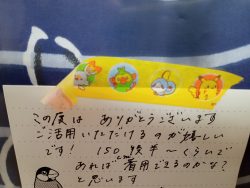 この度は ありがとうございます
ご活用いただけるのが嬉しい
です! 150後半〜くらいで
あれば 着用できるのかな?
と思います